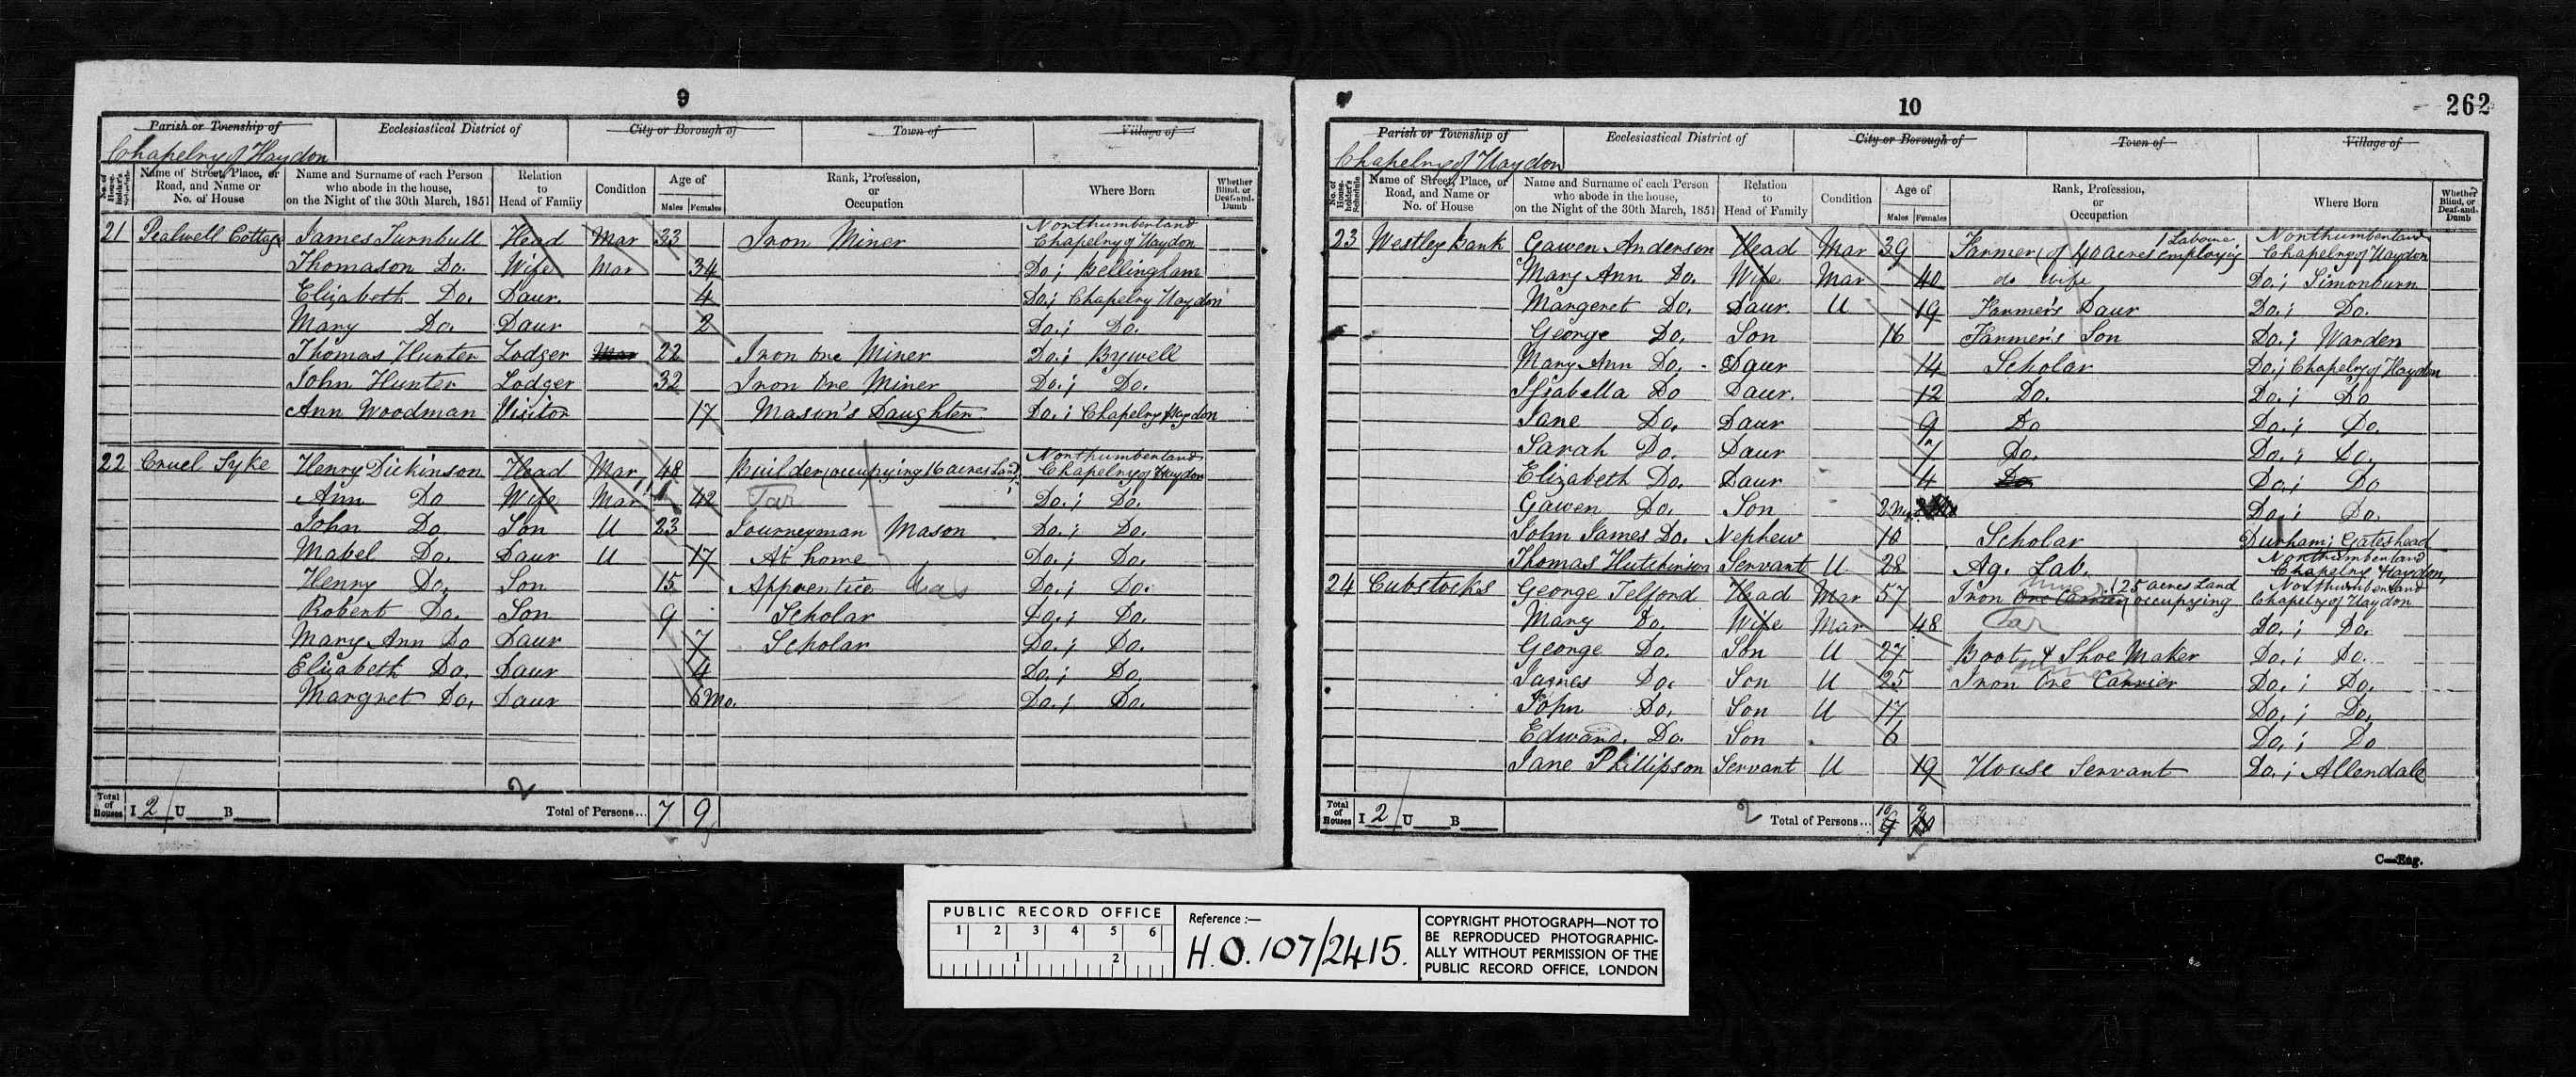 9
Parish or Township of Ecclesiastical District of City or Borough of Town of Village of
Chapelry of Haydon
No. of House-holder's Schedule Name of Street, Place, or Road, and Name or No. of House Name and Surname of each Person who abode in the house, on the Night of the 30th March, 1851 Relation to Head of Family Condition Age of Males Females Rank, Profession, or Occupation Where Born Whether Blind, or Deaf-and-Dumb
21 Pealwell Cottage James Turnbull Head Mar 33 Iron Miner Northumberland Chapelry of Haydon
Thomason Do. Wife Mar 34 Do; Bellingham
Elizabeth Do. Daur. 4 Do; Chapelry Haydon
Mary Do. Daur 2 Do.; Do.
Thomas Hunter Lodger Mar 22 Iron Ore Miner Do.; Bywell
John Hunter Lodger 32 Iron Ore Miner Do.; Do.
Ann Woodman Visitor 17 Mason's Daughter Do.; Chapelry Haydon
22 Cruel Syke Henry Dickinson Head Mar 48 Builder (occupying 16 acres Land) Northumberland Chapelry of Haydon
Ann Do Wife Mar 42 Do.; Do.
John Do. Son U 23 Journeyman Mason Do.; Do.
Mabel Do. Daur U 17 At home Do.; Do.
Henry Do. Son 15 Apprentice Mas Do.; Do.
Robert Do. Son 9 Scholar Do.; Do.
Mary Ann Do Daur 7 Scholar Do.; Do.
Elizabeth Do. Daur 4 Do.; Do.
Margret Do. Daur 6 Mo. Do.; Do.
2
Total of Houses I 2 U B Total of Persons... 7 9
10
262
Parish or Township of Ecclesiastical District of City or Borough of Town of Village of
Chapelry of Haydon
No. of House-holder's Schedule Name of Street, Place, or Road, and Name or No. of House Name and Surname of each Person who abode in the house, on the Night of the 30th March, 1851 Relation to Head of Family Condition Age of Males Females Rank, Profession, or Occupation Where Born Whether Blind, or Deaf-and-Dumb
23 Westley bank Gawen Anderson Head Mar 39 Farmer (of 40 acres employing 1 Labourer Northumberland Chapelry of Haydon
Mary Ann Do. Wife Mar 40 do wife Do.; Simonburn
Margeret Do. Daur. U 19 Farmer's Daur Do.; Do.
George Do. Son 16 Farmer's Son Do.; Warden
Mary Ann Do. Daur 14 Scholar Do; Chapelry of Haydon
Isabella Do Daur. 12 Do. Do.; Do
Jane Do. Daur 9 Do Do.; Do.
Sarah Do. Daur 7 Do. Do.; Do.
Elizabeth Do. Daur 4 Do. Do.; Do
Gawen Do. Son 2 Mo. Do.; Do.
John James Do. Nephew 10 Scholar Durham; Gateshead
Thomas Hutchinson Servant U 28 Ag. Lab. Northumberland Chapelry Haydon
24 Cubstocks George Telford Head Mar 57 Iron Ore Carrier (occupying 25 acres Land Northumberland Chapelry of Haydon
Mary Do. Wife Mar 48 Do.; Do.
George Do. Son U 27 Boot & Shoe Maker Do.; Do.
James Do. Son U 25 Iron Ore Carrier Do.; Do.
John Do. Son U 17 Do.; Do.
Edward Do. Son 6 Do.; Do
Jane Phillipson Servant U 19 House Servant Do.; Allendale
Total of Houses I 2 U B 2 Total of Persons... 10 9
C—Eng.
PUBLIC RECORD OFFICE
1 2 3 4 5 6
1 2
Reference :—
H.O. 107/2415.
COPYRIGHT PHOTOGRAPH—NOT TO
BE REPRODUCED PHOTOGRAPHIC-
ALLY WITHOUT PERMISSION OF THE
PUBLIC RECORD OFFICE, LONDON